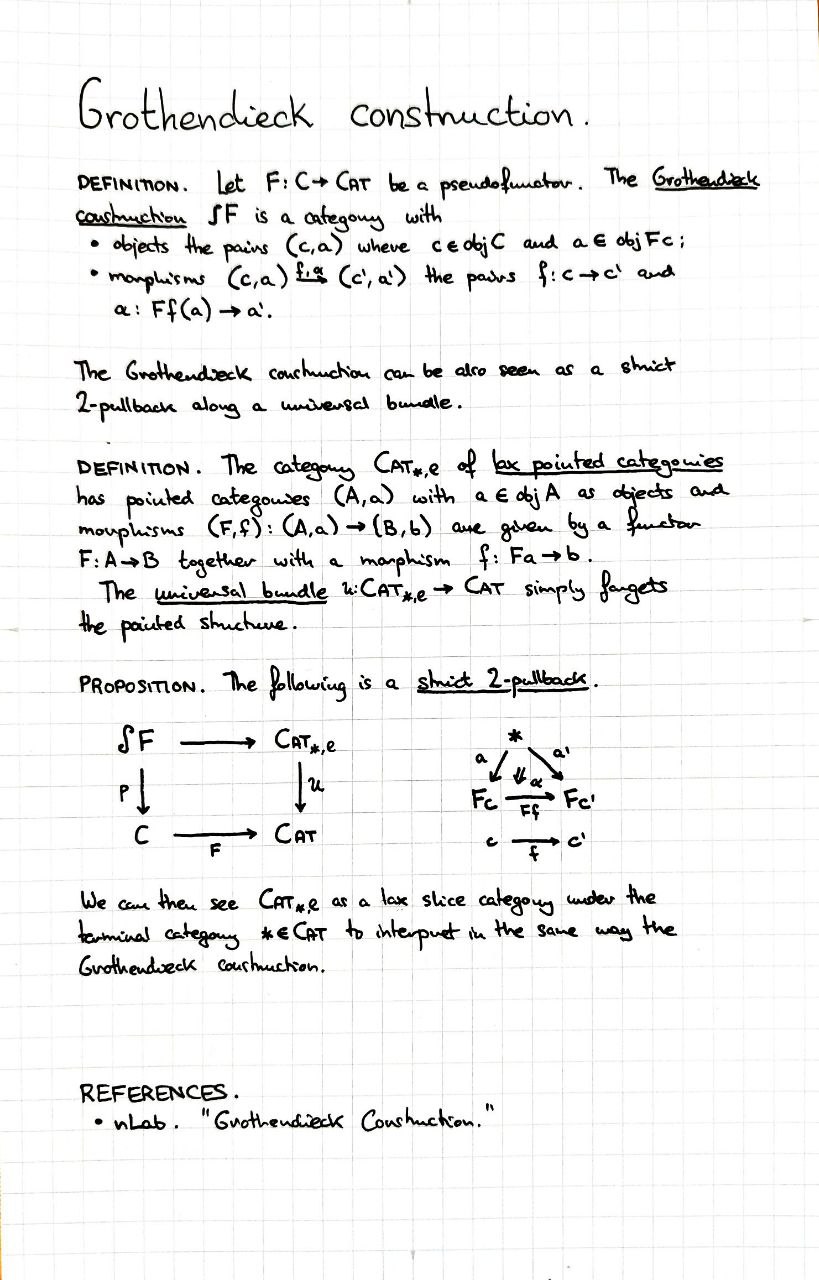 Grothendieck construction.
DEFINITION. Let F: C → CAT be a pseudofunctor. The Grothendieck
construction ∫F is a category with
• objects the pairs (c,a) where c ∈ obj C and a ∈ obj Fc;
• morphisms (c,a) →^{f,α} (c',a') the pairs f: c → c' and
α: Ff(a) → a'.
The Grothendieck construction can be also seen as a strict
2-pullback along a universal bundle.
DEFINITION. The category CAT_{*,ℓ} of lax pointed categories
has pointed categories (A,a) with a ∈ obj A as objects and
morphisms (F,f): (A,a) → (B,b) are given by a functor
F: A → B together with a morphism f: Fa → b.
The universal bundle u: CAT_{*,ℓ} → CAT simply forgets
the pointed structure.
PROPOSITION. The following is a strict 2-pullback.
∫F → CAT_{*,ℓ}
p ↓ ↓ u
C → CAT
F
*
a ⇓α a'
Fc → Fc'
Ff
c → c'
f
We can then see CAT_{*,ℓ} as a lax slice category under the
terminal category * ∈ CAT to interpret in the same way the
Grothendieck construction.
REFERENCES.
• nLab. "Grothendieck Construction."